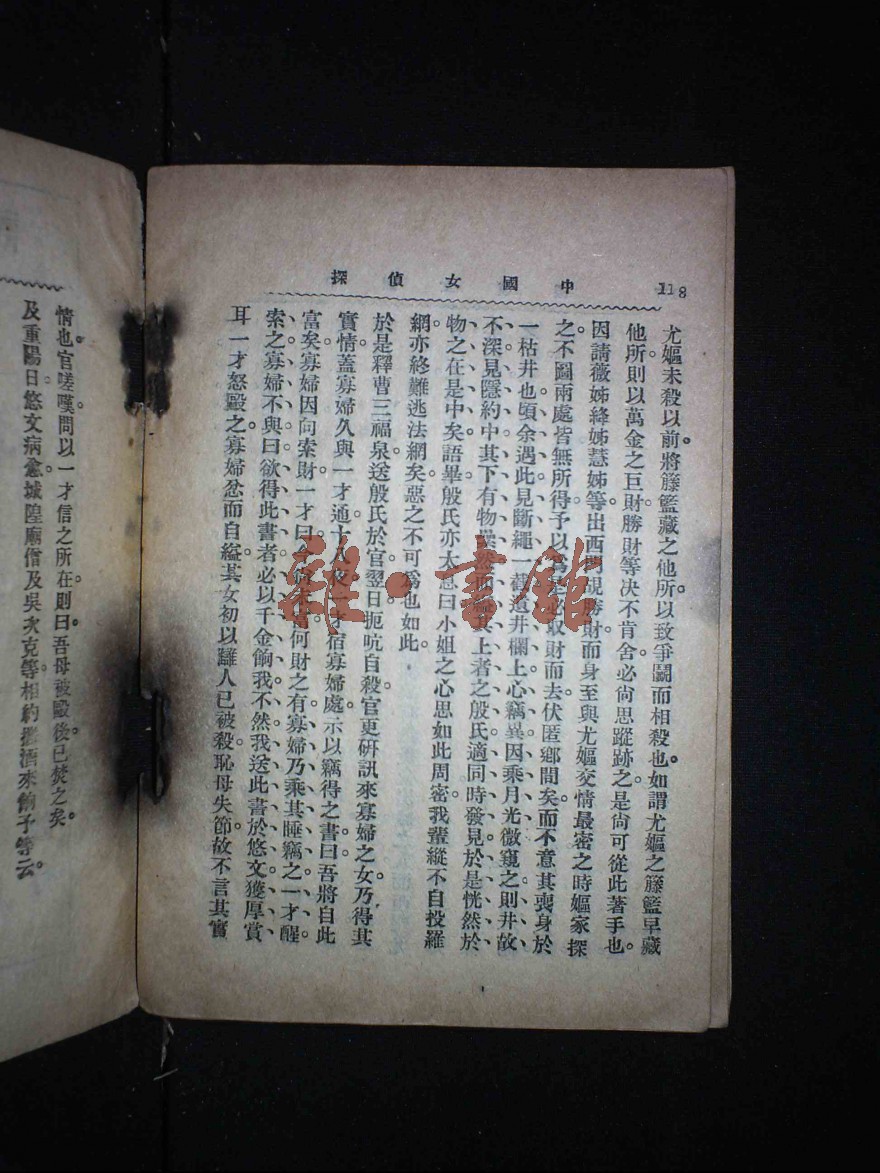 118
中國女偵探
尤嫗未殺以前。將籐籃藏之他所。以致爭鬭而相殺也。如謂尤嫗之籐籃早藏
他所。則以萬金之巨財。勝財等决不肯舍。必尙思蹤跡之。是尙可從此著手也。
因請薇姊絳姊慧姊等。出西門覘勝財。而身至與尤嫗交情最密之時嫗家探
之。不圖兩處皆無所得。予以爲是必取財而去。伏匿鄕間矣。而不意其喪身於
一枯井也。頃余過此。見斷繩一截。遺井欄上。心竊異。因乘月光微窺之。則井故
不深。見隱約中其下有物纍然。而縊其上者之殷氏。適同時發見。於是恍然於
物之在是中矣。語畢。殷氏亦太息曰。小姐之心思。如此周密。我輩縱不自投羅
網。亦終難逃法網矣。惡之不可爲也如此。
於是釋曹三福泉。送殷氏於官。翌日扼吭自殺。官更研訊來寡婦之女。乃得其
實情。蓋寡婦久與一才通。十八夜。一才宿寡婦處。示以竊得之書曰。吾將自此
富矣。寡婦因向索財。一才曰。今尙未富。何財之有。寡婦乃乘其睡竊之。一才醒
索之。寡婦不與。曰。欲得此書者。必以千金餉我。不然我送此書於悠文。獲厚賞
耳。一才怒毆之。寡婦忿而自縊。其女初以讎人已被殺。恥母失節。故不言其實
情也。官嗟嘆。問以一才信之所在。則曰。吾母被毆後。已焚之矣。
及重陽日。悠文病愈。城隍廟僧及吳次克等。相約攜酒來餉予等云。
雜·書館